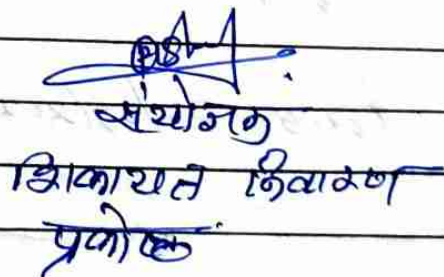 संयोजक
शिकायत निवारण
प्रकोष्ठ